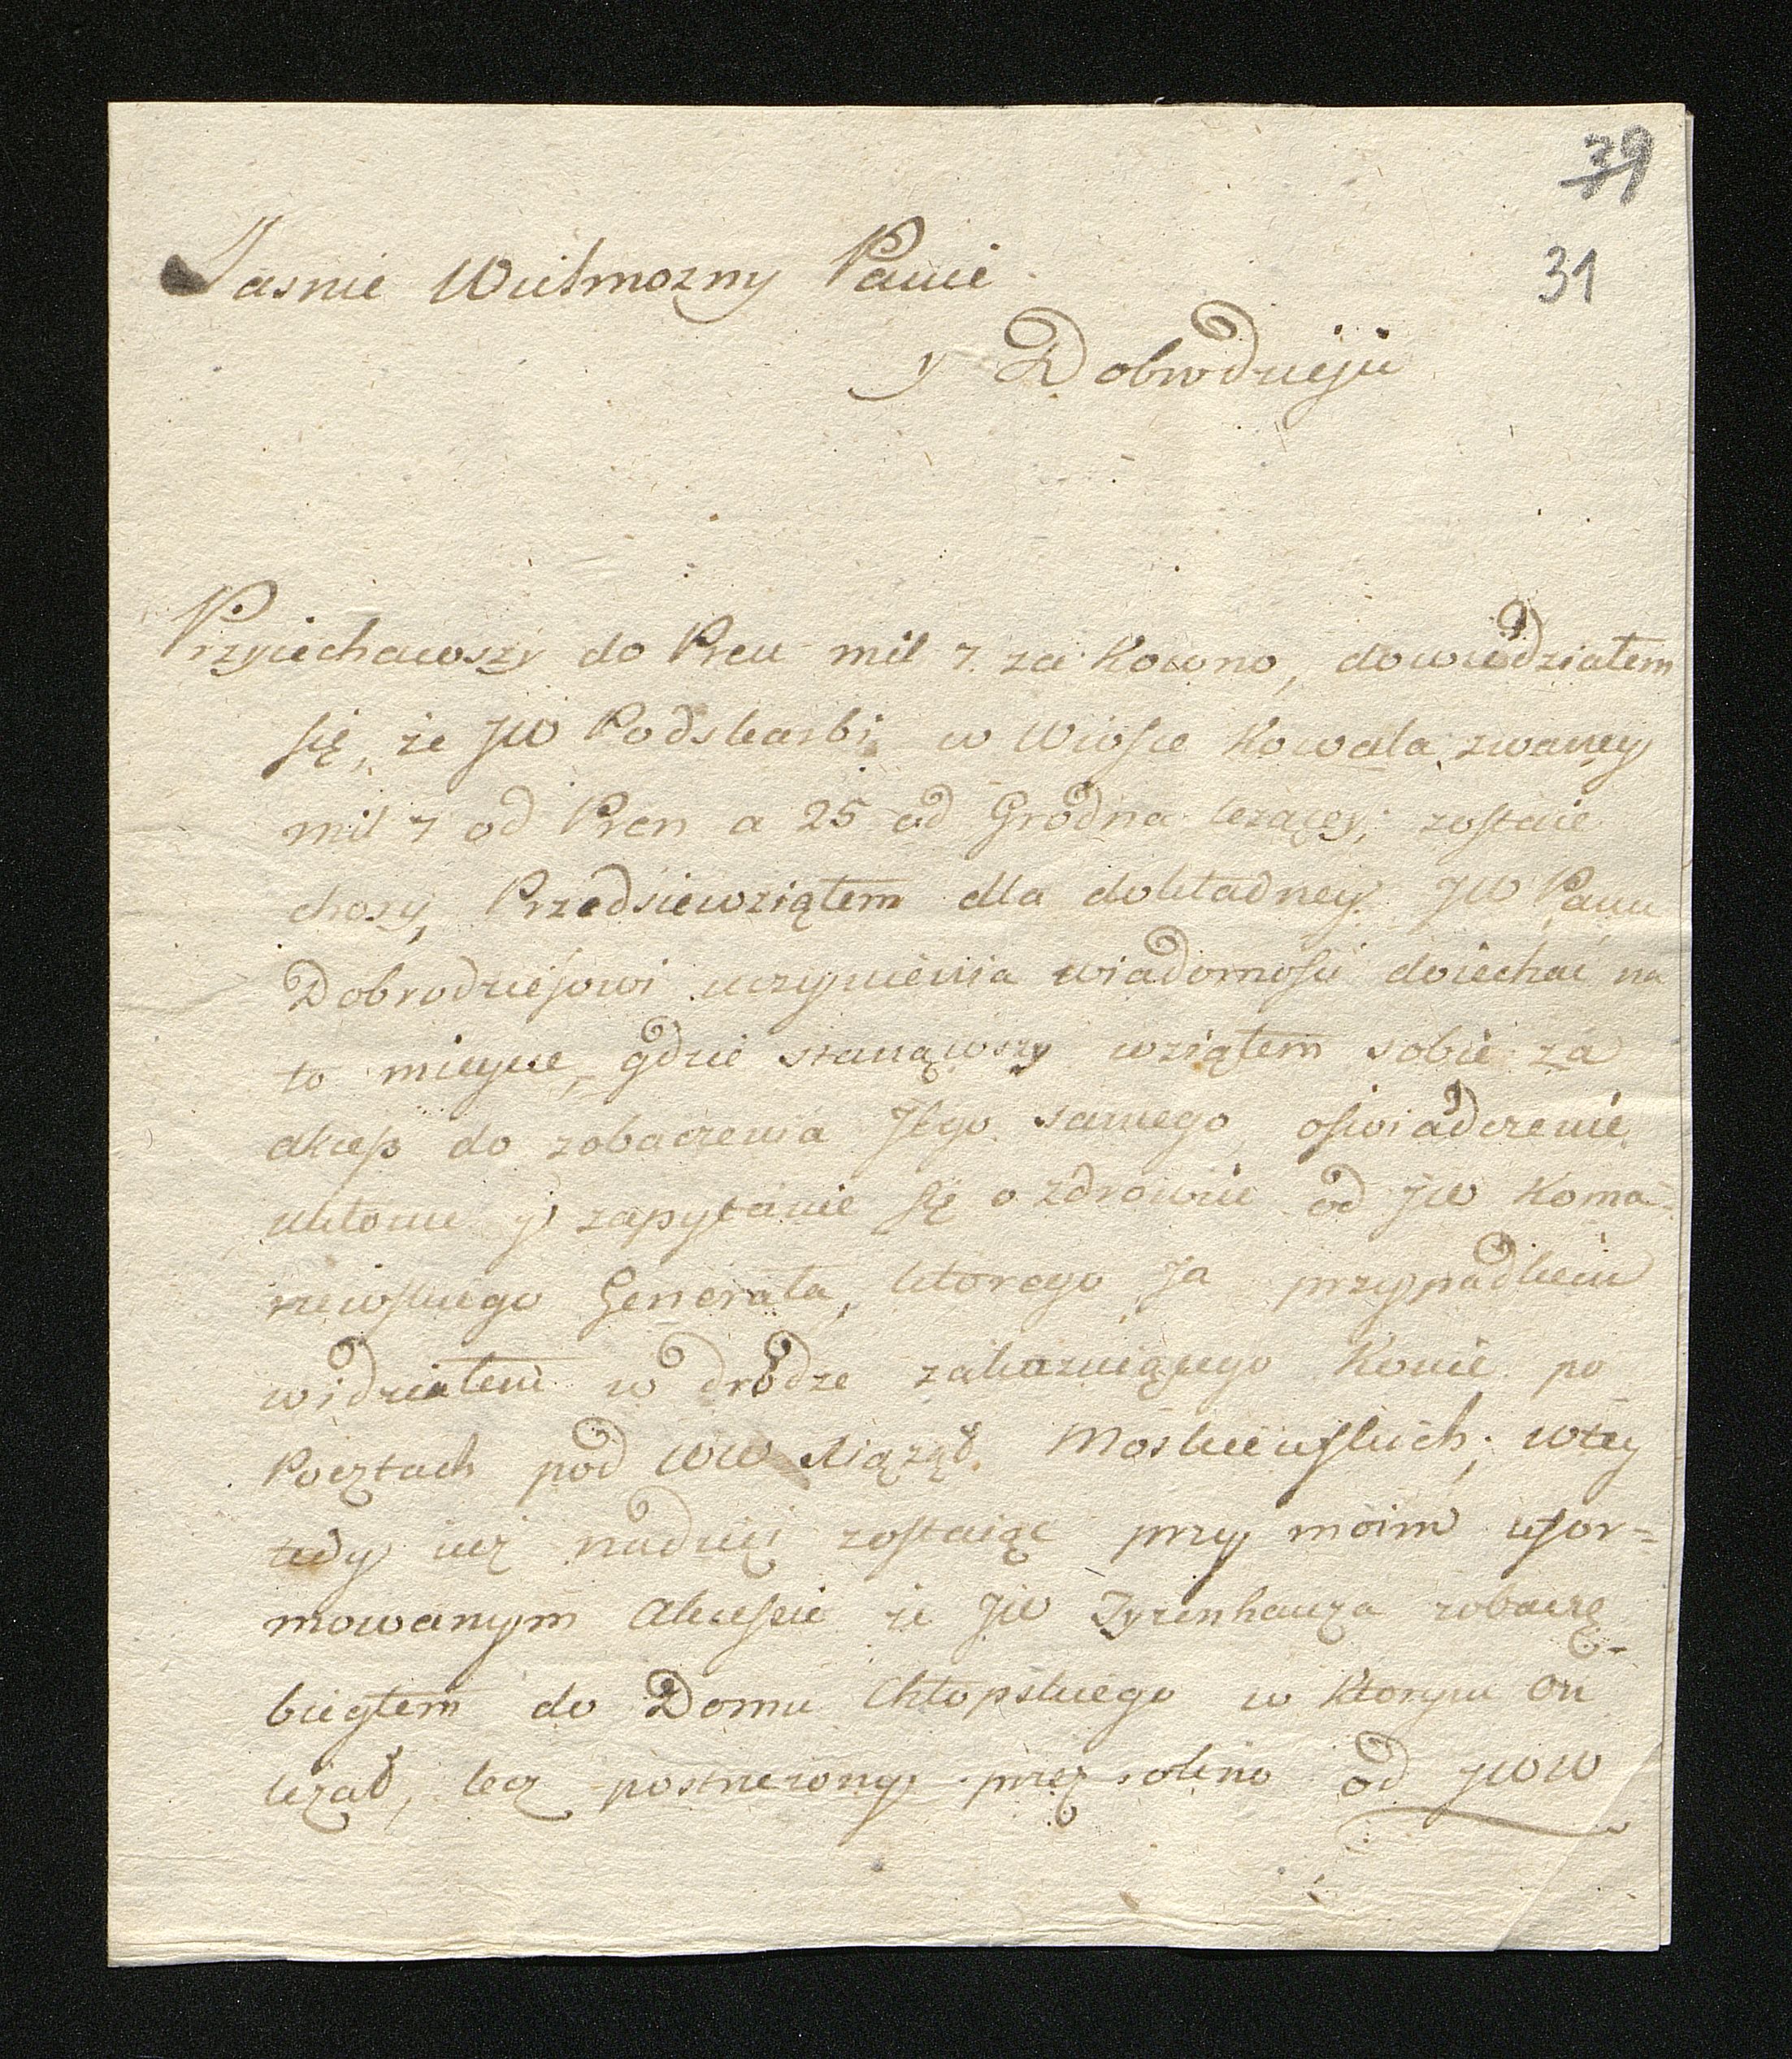 39
31
Jasnie Wielmozny Panie
y Dobrodzieju
Przyiechawszy do Pren mil 7. za Kowno, dowiedziałem
się, że JW Podskarbi w Wiosce Kowala zwaney
mil 7 od Pren a 25 od Grodna leżącey, zostaie
chory, Przedsiewziąłem dla dokładney JW Panu
Dobrodziejowi uczynienia wiadomości doiechać na
to mieysce, gdzie stanąwszy wziąłem sobie za
akces do zobaczenia Jego samego, oswiadczenie
ukłonu y zapytanie się o zdrowie od JW Koma-
rzewskiego Generała, ktorego Ja przypadkiem
widziałem w drodze zakazuiącego Konie po
Pocztach pod WW Xiążąt Moskiewskich; wtey
tedy iuż nadziei zostaiąc przy moim ufor=
mowanym Akcessie że JW Tyzenhauza zobaczę
biegłem do Domu Chłopskiego w ktorym On
leżał, lecz postrzeżony przez okno od JWW